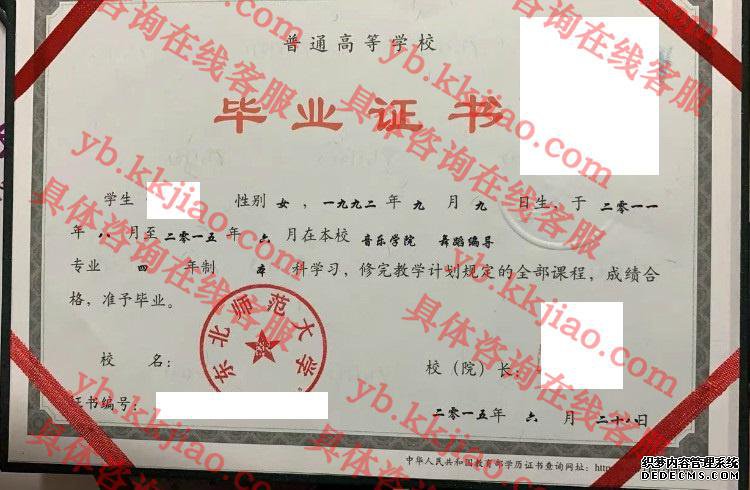 普通高等学校
毕业证书
学生 性别 女 ,一九九二 年 九 月 九 日生, 于 二零一一
年 八 月至 二零一五 年 六 月在本校 音乐学院 舞蹈编导
专业 四 年制 本 科学习, 修完教学计划规定的全部课程, 成绩合
格, 准予毕业。
东北师范大学
校 名:
校（院）长:
证书编号:
二零一五年 六 月 二十八日
中华人民共和国教育部学历证书查询网址: http
yb.kkjiao.com
具体咨询在线客服
织梦内容管理系统
DEDECMS.COM